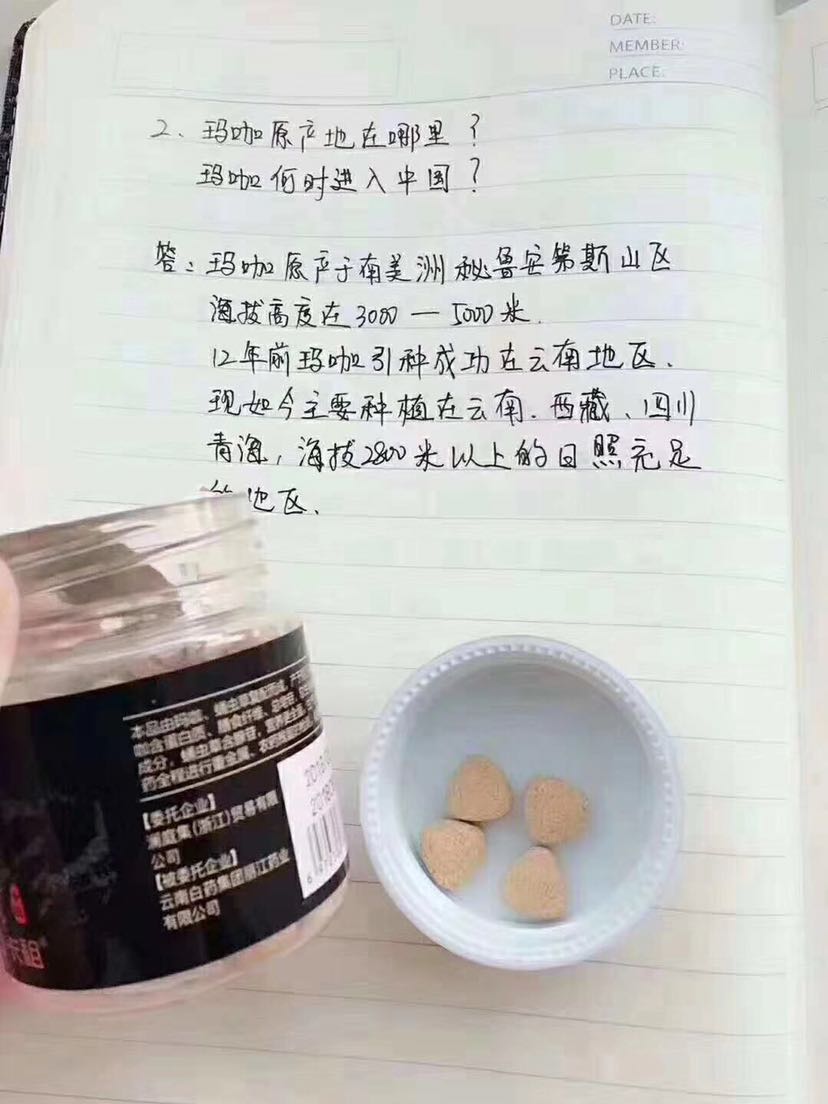 DATE:
MEMBER:
PLACE:
2、玛咖原产地在哪里？
玛咖何时进入中国？
答：玛咖原产于南美洲秘鲁安第斯山区
海拔高度在3000—5000米.
12年前玛咖引种成功在云南地区.
现如今主要种植在云南、西藏、四川
青海，海拔2800米以上的日照充足
的地区.
本品由玛咖、蛹虫草
咖含蛋白质、膳食纤维、
成分，蛹虫草含
药全程进行重金属、农药
【委托企业】
集(浙江)贸易有限
公司
【被委托企业】
云南白药集团丽江药业
有限公司